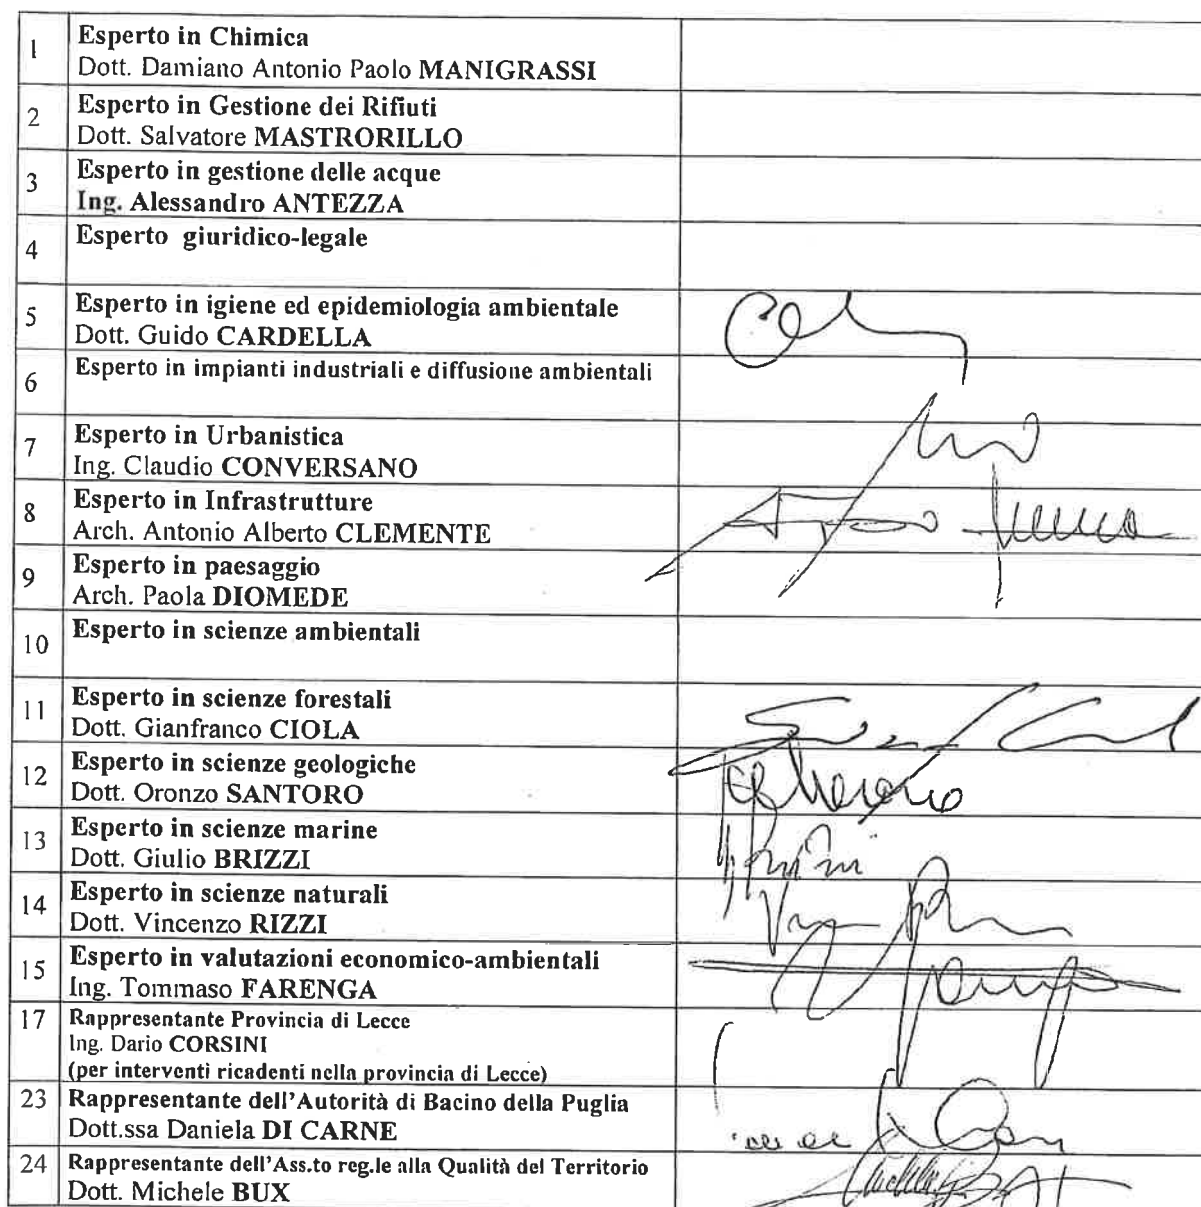 1
Esperto in Chimica
Dott. Damiano Antonio Paolo MANIGRASSI
2
Esperto in Gestione dei Rifiuti
Dott. Salvatore MASTRORILLO
3
Esperto in gestione delle acque
Ing. Alessandro ANTEZZA
4
Esperto giuridico-legale
5
Esperto in igiene ed epidemiologia ambientale
Dott. Guido CARDELLA
6
Esperto in impianti industriali e diffusione ambientali
7
Esperto in Urbanistica
Ing. Claudio CONVERSANO
8
Esperto in Infrastrutture
Arch. Antonio Alberto CLEMENTE
9
Esperto in paesaggio
Arch. Paola DIOMEDE
10
Esperto in scienze ambientali
11
Esperto in scienze forestali
Dott. Gianfranco CIOLA
12
Esperto in scienze geologiche
Dott. Oronzo SANTORO
13
Esperto in scienze marine
Dott. Giulio BRIZZI
14
Esperto in scienze naturali
Dott. Vincenzo RIZZI
15
Esperto in valutazioni economico-ambientali
Ing. Tommaso FARENGA
17
Rappresentante Provincia di Lecce
Ing. Dario CORSINI
(per interventi ricadenti nella provincia di Lecce)
23
Rappresentante dell'Autorità di Bacino della Puglia
Dott.ssa Daniela DI CARNE
24
Rappresentante dell'Ass.to reg.le alla Qualità del Territorio
Dott. Michele BUX